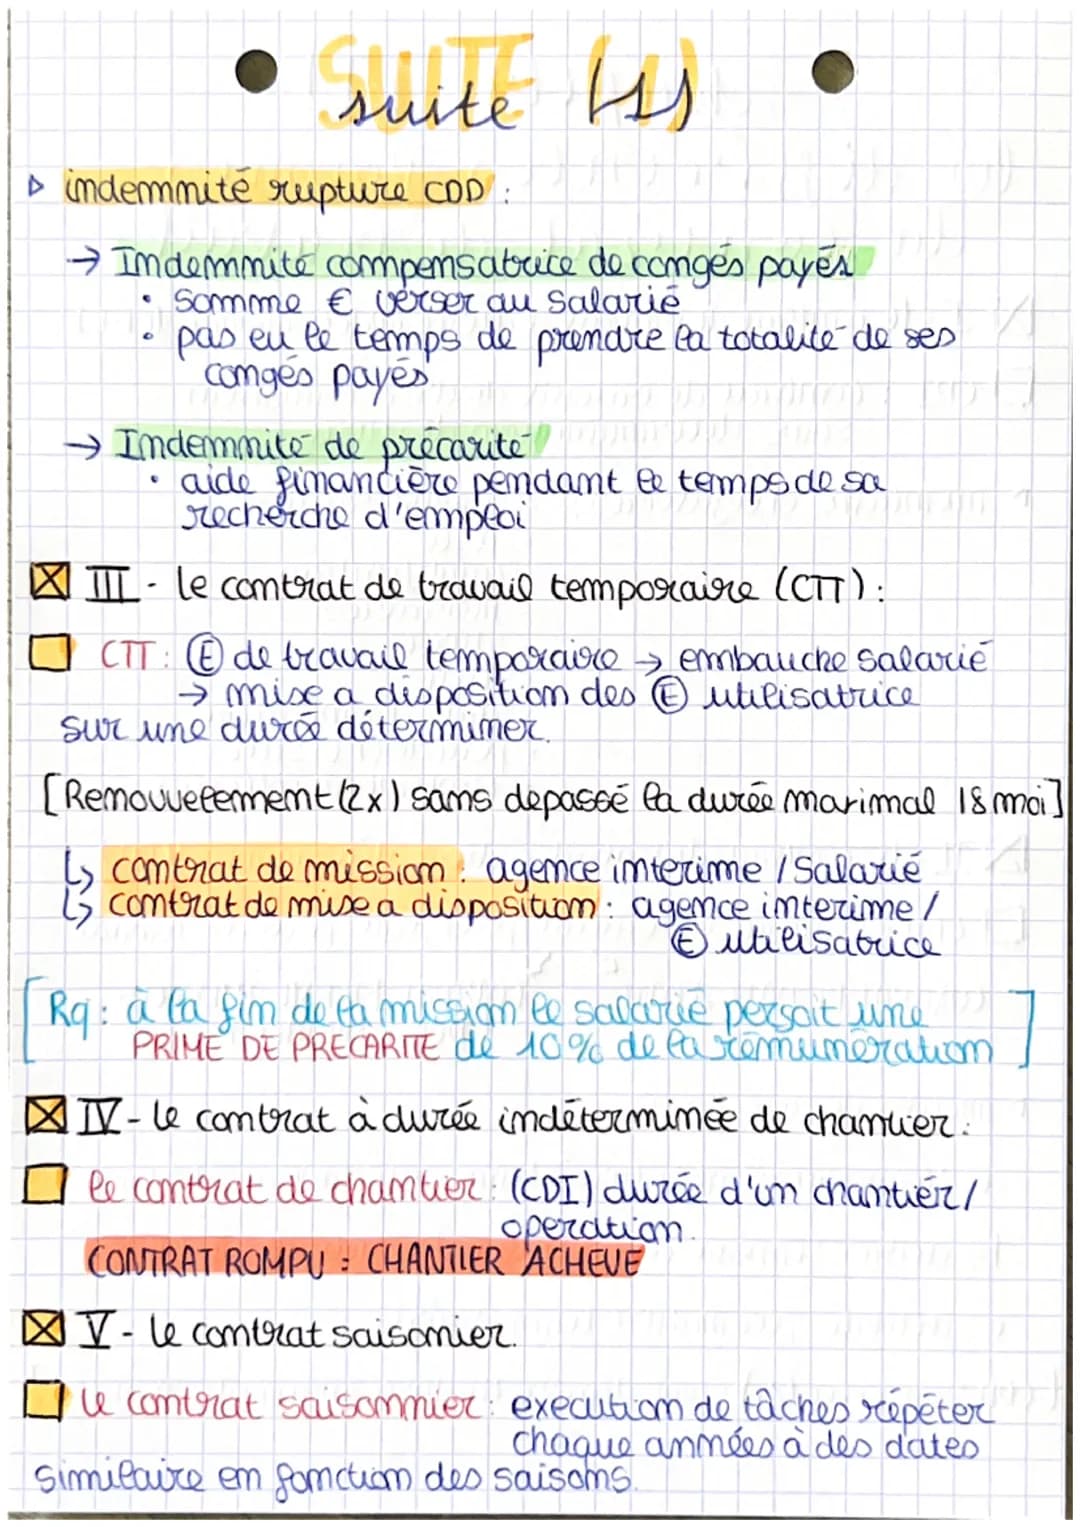 SUITE (1)
suite (1)
▷ indemnité rupture CDD :
→ Indemnité compensatrice de congés payés
• Somme € verser au salarié
• pas eu le temps de prendre la totalité de ses
congés payés
→ Indemnité de précarité
• aide financière pendant le temps de sa
recherche d'emploi
III - le contrat de travail temporaire (CTT) :
CTT : Ⓔ de travail temporaire → embauche salarié
→ mise a disposition des Ⓔ utilisatrice
sur une durée déterminer.
[Renouvellement (2x) sans depassé la durée marimal 18 moi]
↳ contrat de mission : agence interime / Salarié
↳ contrat de mise a disposition : agence interime /
Ⓔ utilisatrice
[Rq : à la fin de la mission le salarié persoit une
PRIME DE PRECARITE de 10% de la rémunération]
IV - le contrat à durée indéterminée de chantier :
le contrat de chantier : (CDI) durée d'un chantiér /
operation.
CONTRAT ROMPU : CHANTIER ACHEVE
V - le contrat saisonier.
le contrat saisonnier : execution de tâches répéter
chaque années à des dates
similaire en fonction des saisons.